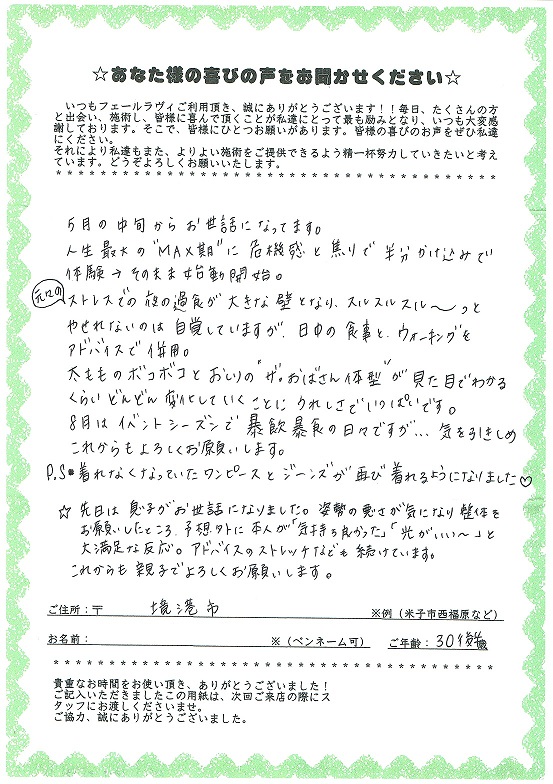 ☆あなた様の喜びの声をお聞かせください☆
いつもフェールラヴィご利用頂き、誠にありがとうございます！！毎日、たくさんの方
と出会い、施術し、皆様に喜んで頂くことが私達にとって最も励みとなり、いつも大変感
謝しております。そこで、皆様にひとつお願いがあります。皆様の喜びのお声をぜひ私達
にください。
それにより私達もまた、よりよい施術をご提供できるよう精一杯努力していきたいと考え
ています。どうぞよろしくお願いいたします。
5月の中旬からお世話になってます。
人生最大の"MAX期"に危機感と焦りで半分かけ込みで
体験→そのまま始動開始。
元々のストレスでの夜の過食が大きな壁となり、スルスルスル〜っと
やせれないのは自覚していますが、日中の食事と、ウォーキングを
アドバイスで併用。
太もものボコボコとおしりの"ザ・おばさん体型"が見た目でわかる
くらいどんどん変化していくことにうれしさでいっぱいです。
8月はイベントシーズンで暴飲暴食の日々ですが…気を引きしめ
これからもよろしくお願いします。
P.S●着れなくなっていたワンピースとジーンズが再び着れるようになりました♡
☆先日は息子がお世話になりました。姿勢の悪さが気になり整体を
お願いしたところ、予想外に本人が「気持ち良かった」「光がいい〜」と
大満足な反応。アドバイスのストレッチなども続けています。
これからも親子でよろしくお願いします。
ご住所：〒 境港市 ※例（米子市西福原など）
お名前： ※（ペンネーム可） ご年齢：30代 歳
貴重なお時間をお使い頂き、ありがとうございました！
ご記入いただきましたこの用紙は、次回ご来店の際にス
タッフにお渡しくださいませ。
ご協力、誠にありがとうございました。